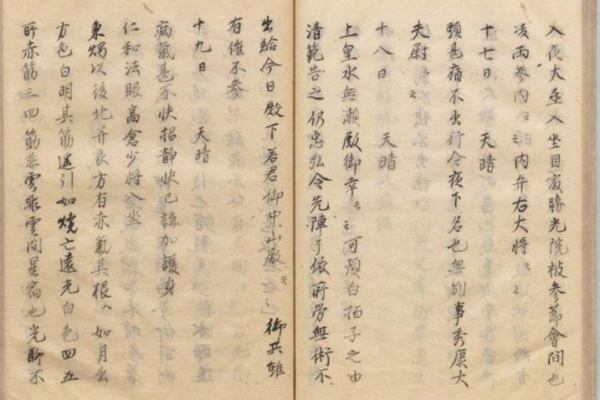 入夜大丞入坐自最勝光院被参節會間也
凌雨参内云々内弁右大将云々
十七日　天晴
頭甚痛不出行今夜下名也無別事秀康大
夫尉云々
十八日　天晴
上皇水無瀬殿御幸云々可預白拍子之由
清範告之仍忠弘令先陣了依所労無術不
出給今日殿下若君御中山殿云々御共雖
有催不参
十九日　天晴
病氣甚不快招静快已講加護身
仁和法眼高倉少将入坐
秉燭以後北并艮方有赤氣其根ハ如月出
方色白明其筋遥引如焼亡遠光白色四五
所赤筋三四筋非雲非雲間星宿也光聊不